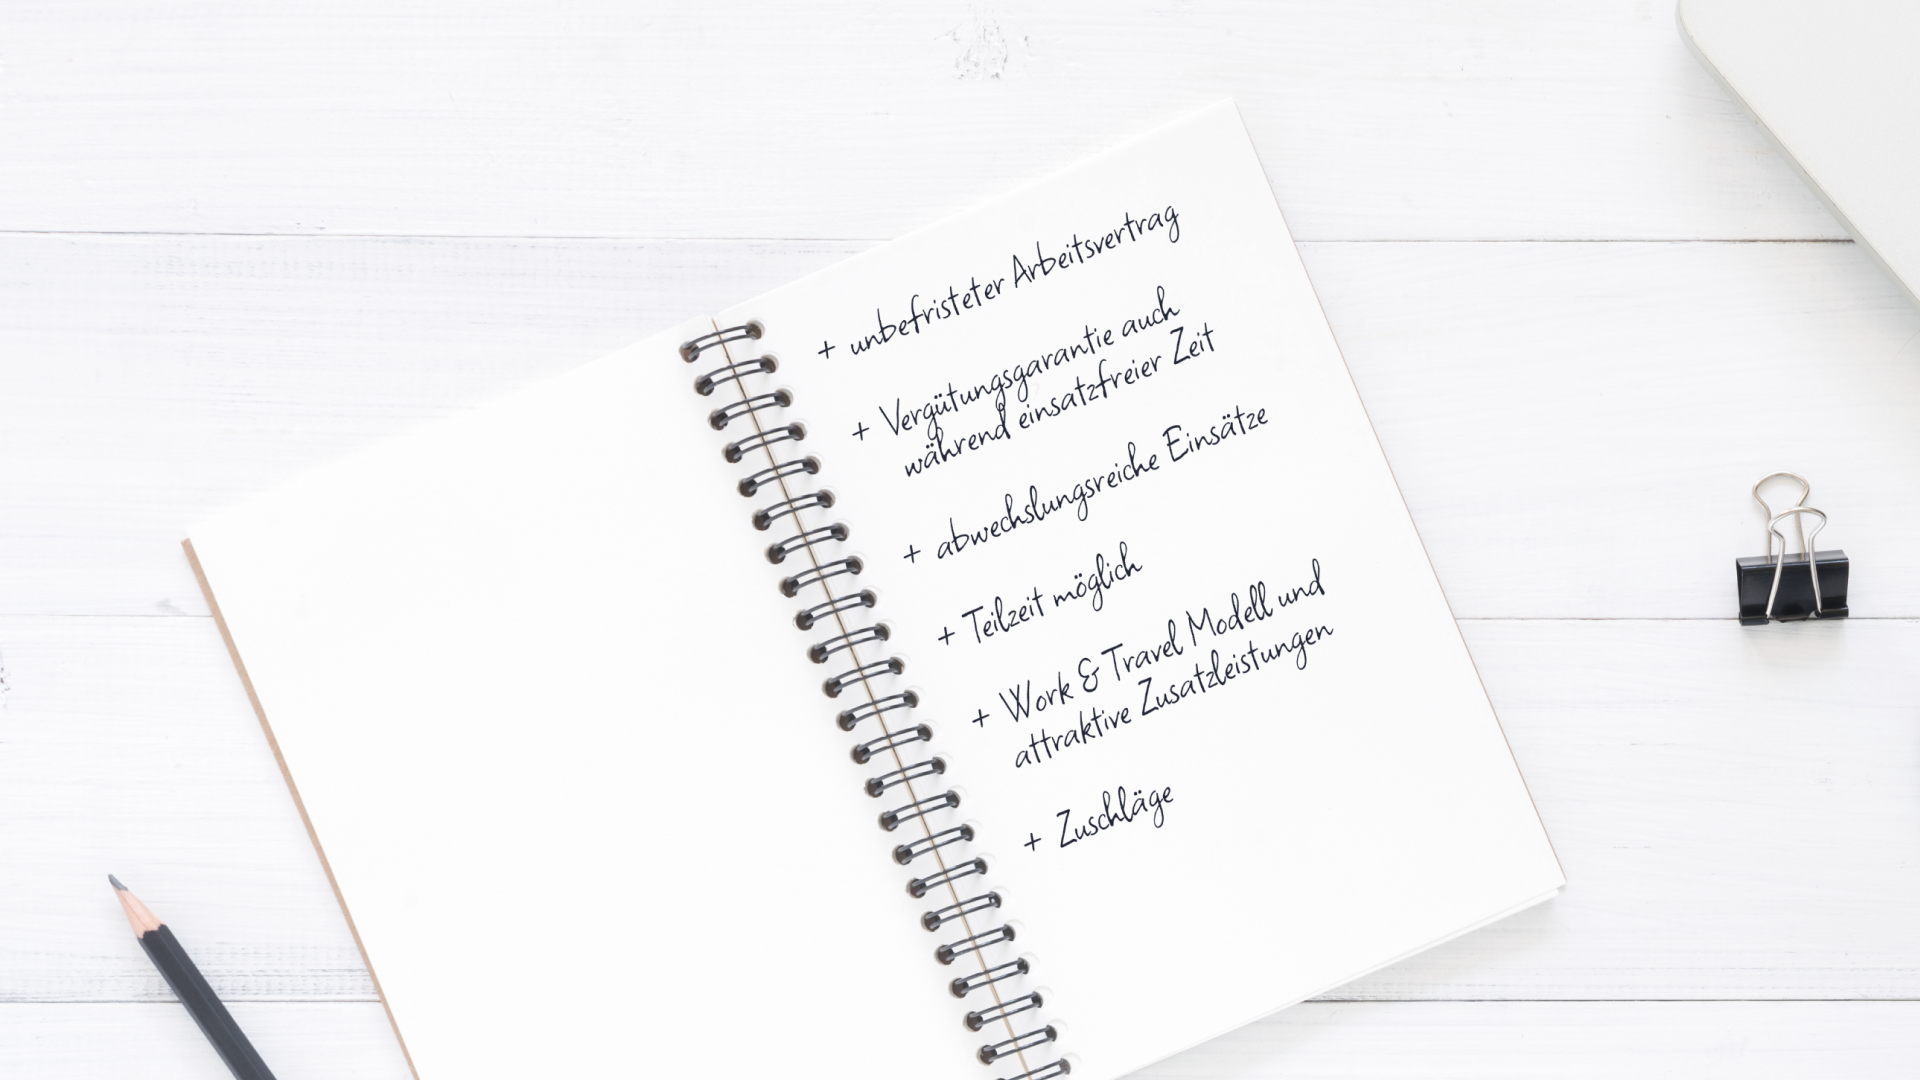 + unbefristeter Arbeitsvertrag
+ Vergütungsgarantie auch
während einsatzfreier Zeit
+ abwechslungsreiche Einsätze
+ Teilzeit möglich
+ Work & Travel Modell und
attraktive Zusatzleistungen
+ Zuschläge